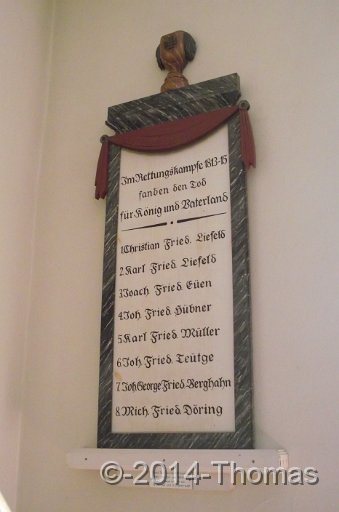 Im Rettungskampfe 1813-15
fanden den Tod
für König und Vaterland
1.Christian Fried. Liefeld
2.Karl Fried. Liefeld
3.Joach Fried. Euen
4.Joh Fried. Hübner
5.Karl Fried. Müller
6.Joh Fried. Teütge
7.Joh.George Fried.Berghahn
8.Mich Fried.Döring
©-2014-Thomas